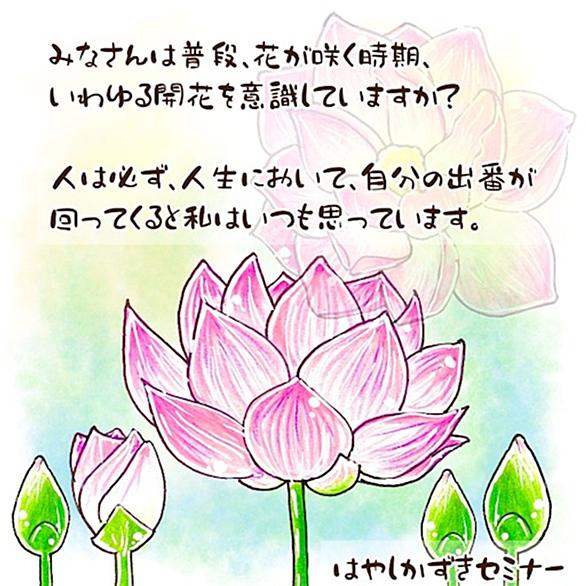 みなさんは普段、花が咲く時期、
いわゆる開花を意識していますか?
人は必ず、人生において、自分の出番が
回ってくると私はいつも思っています。
はやしかずきセミナー